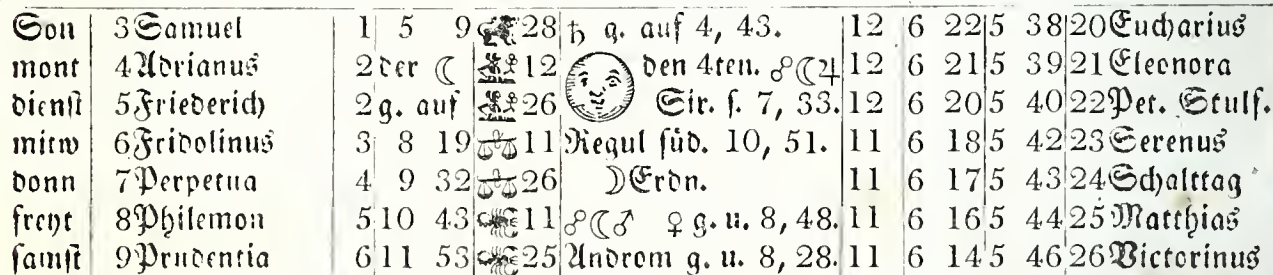 Son 3 Samuel 1 5 9 28 ♄ g. auf 4, 43. 12 6 22 5 38 20 Eucharius
mont 4 Adrianus 2 der ☾ 12 den 4ten. ☍☾♃ 12 6 21 5 39 21 Eleonora
dienst 5 Friederich 2 g. auf 26 Sir. s. 7, 33. 12 6 20 5 40 22 Pet. Stulf.
mitw 6 Fridolinus 3 8 19 ♎ 11 Regul süd. 10, 51. 11 6 18 5 42 23 Serenus
donn 7 Perpetua 4 9 32 ♎ 26 ☽Erdn. 11 6 17 5 43 24 Schalttag
freyt 8 Philemon 5 10 43 ♏ 11 ☍☾♂ ♀ g. u. 8, 48. 11 6 16 5 44 25 Matthias
samst 9 Prudentia 6 11 53 ♏ 25 Androm g. u. 8, 28. 11 6 14 5 46 26 Victorinus